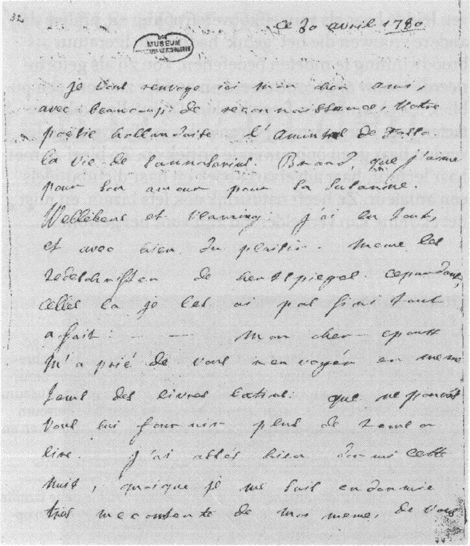 32
ce 30 avril 1780
MUSEUM
je vous renvoye ici mon cher ami,
avec beaucoup de reconnaissance, votre
poësie hollandaise l'Amint de Tasso
la vie de Brand que j'aime
pour son amour pour la Susanne.
Wellekens et j'ai lu tout,
et avec bien du plaisir. meme les
de hentspiegel. cependant,
celles la je les ai pas fini tout
a fait: — mon cher epoux
m'a prié de vous renvoyer en meme
tems des livres latins. que ne pouvés
vous lui fournir plus de tems a
lire. j'ai assés bien dormi cette
nuit, quoique je me suis endormie
tres mecontente de moi meme, de vous